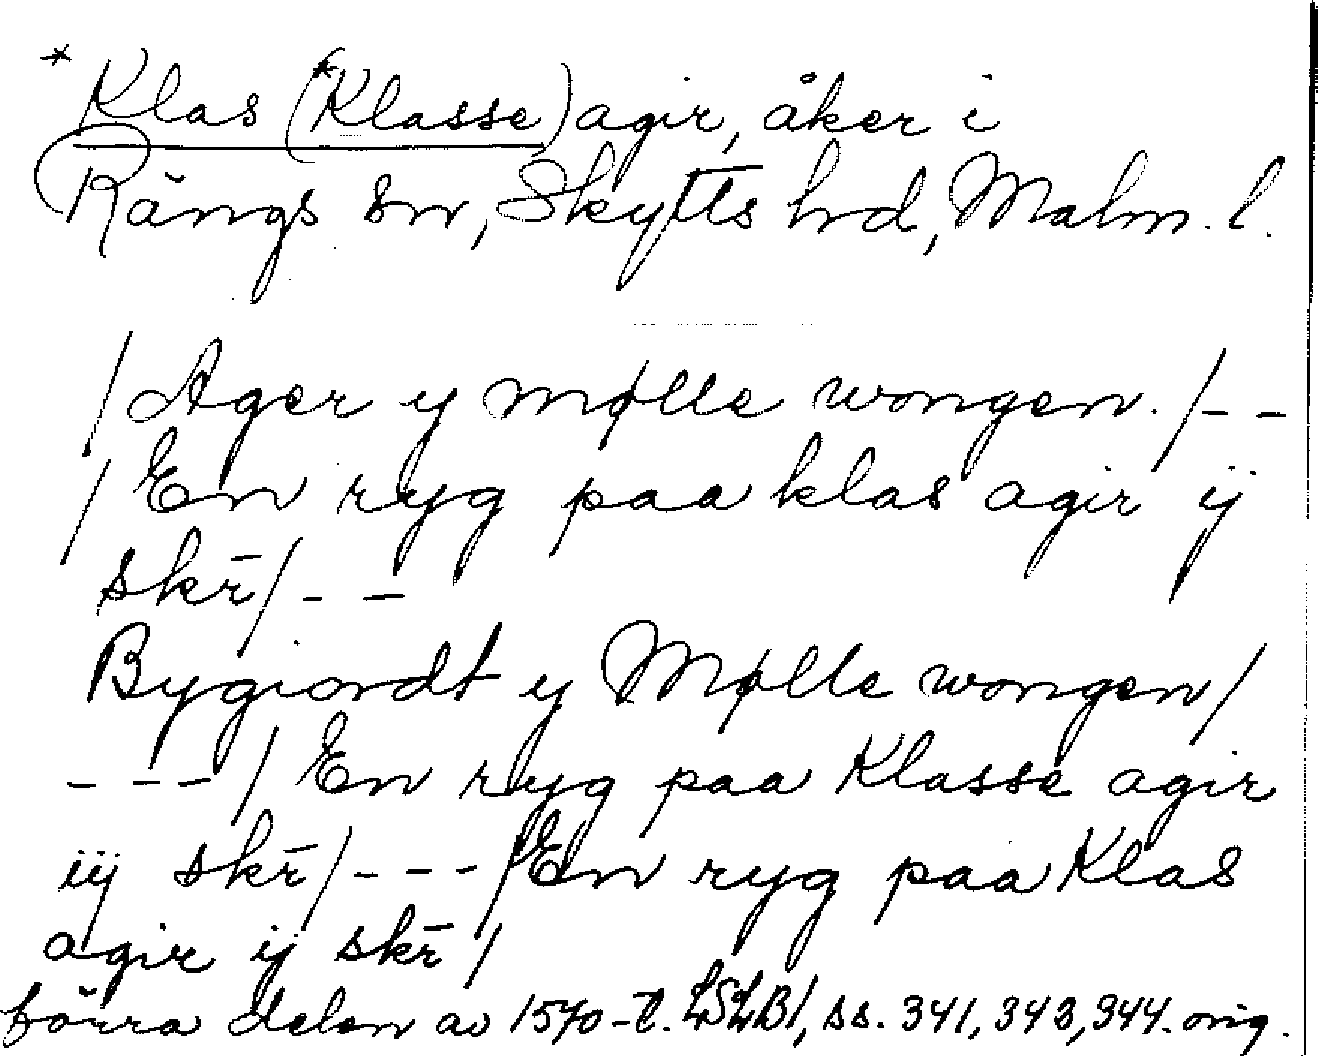 *Klas (*Klasse)agir, åker i
Rängs sn, Skytts hd, Malm. l.
/Ager y mølle wongen./--
/En ryg paa klas agir ij
skr̄/--
Bygiordt y Mølle wongen/
---/En ryg paa Klasse agir
iij skr̄/---/En ryg paa Klas
agir ij skr̄/
förra delen av 1570-t. LSLB1, ss. 341, 343, 344. orig.